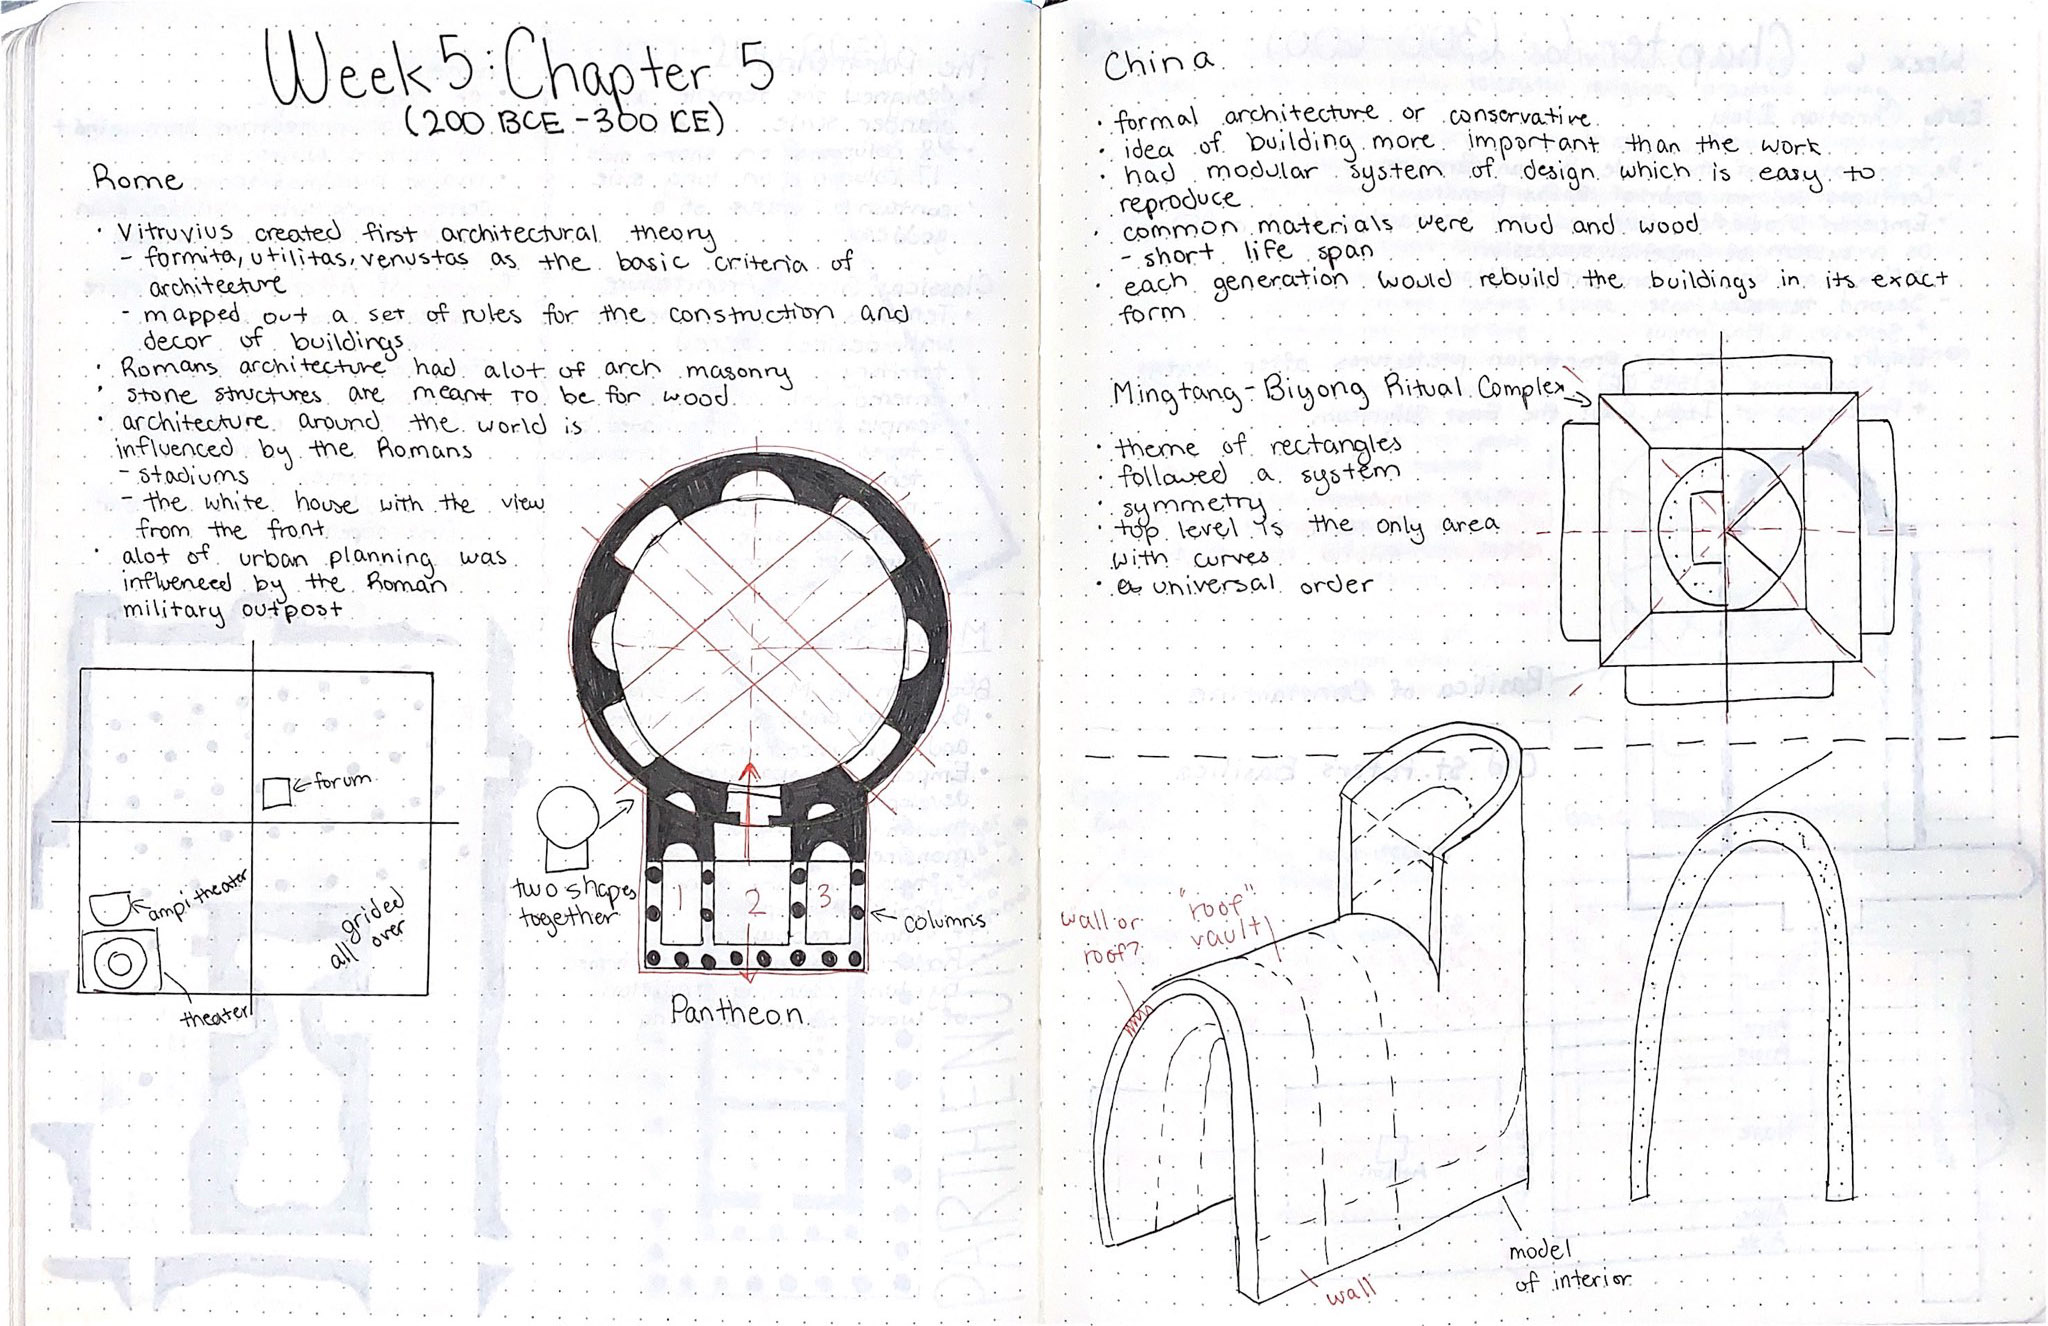 Week 5: Chapter 5
(200 BCE - 300 CE)
Rome
· Vitruvius created first architectural theory
- formita, utilitas, venustas as the basic criteria of
architecture
- mapped out a set of rules for the construction and
decor of buildings
· Romans architecture had alot of arch masonry
· stone structures are meant to be for wood
· architecture around the world is
influenced by the Romans
- stadiums
- the white house with the view
from the front
· alot of urban planning was
influenced by the Roman
military outpost
forum
ampitheater
theater
all grided
over
two shapes
together
1 2 3
columns
Pantheon
China
· formal architecture or conservative
· idea of building more important than the work
· had modular system of design which is easy to
reproduce
· common materials were mud and wood
- short life span
· each generation would rebuild the buildings in its exact
form
Mingtang - Biyong Ritual Complex
· theme of rectangles
· followed a system
· symmetry
· top level is the only area
with curves
· universal order
wall or
roof?
"roof"
vault
wall
model
of interior